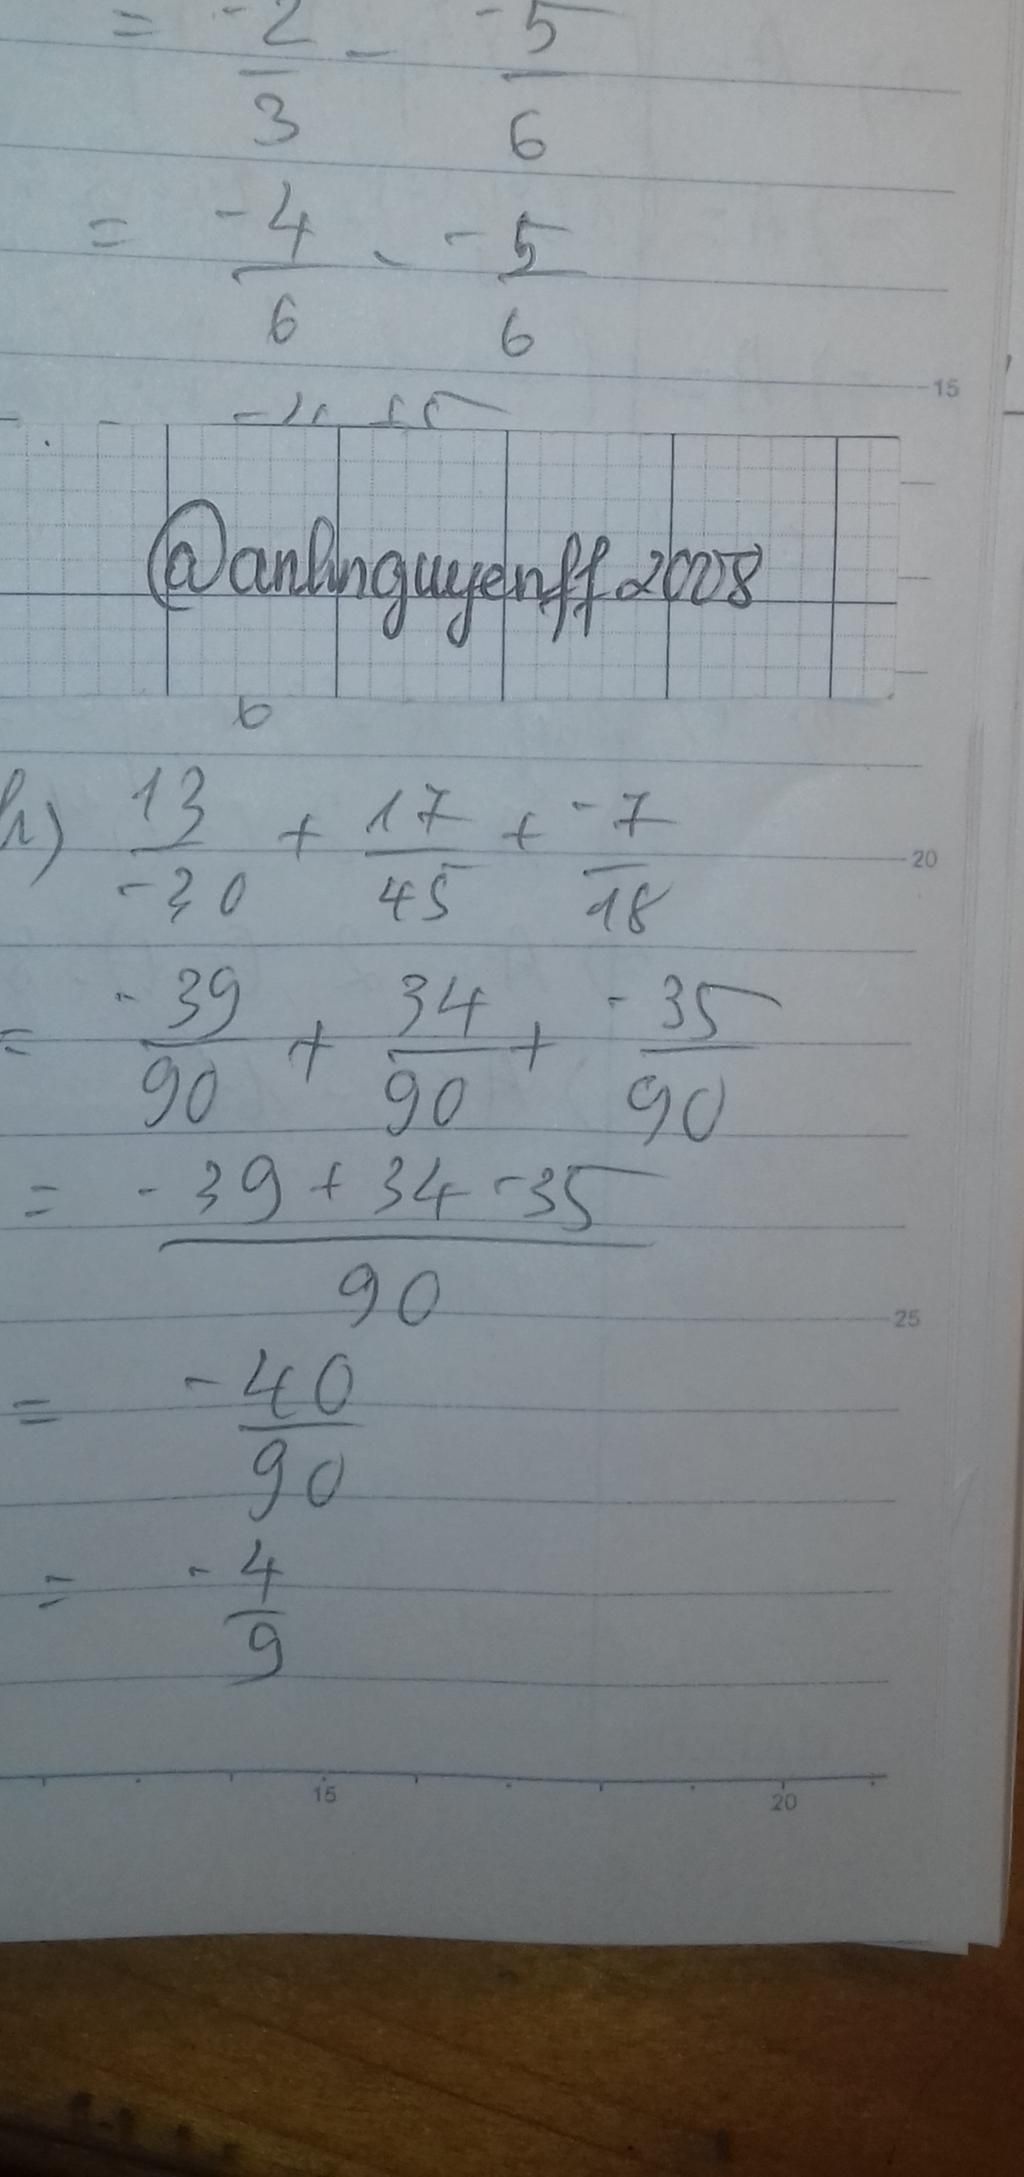 = -2/3 - -5/6
= -4/6 - -5/6
15
@anhnguyenff2008
6
h) 13/-30 + 17/45 + -7/18
20
= -39/90 + 34/90 + -35/90
= -39+34-35/90
25
= -40/90
= -4/9
15 20